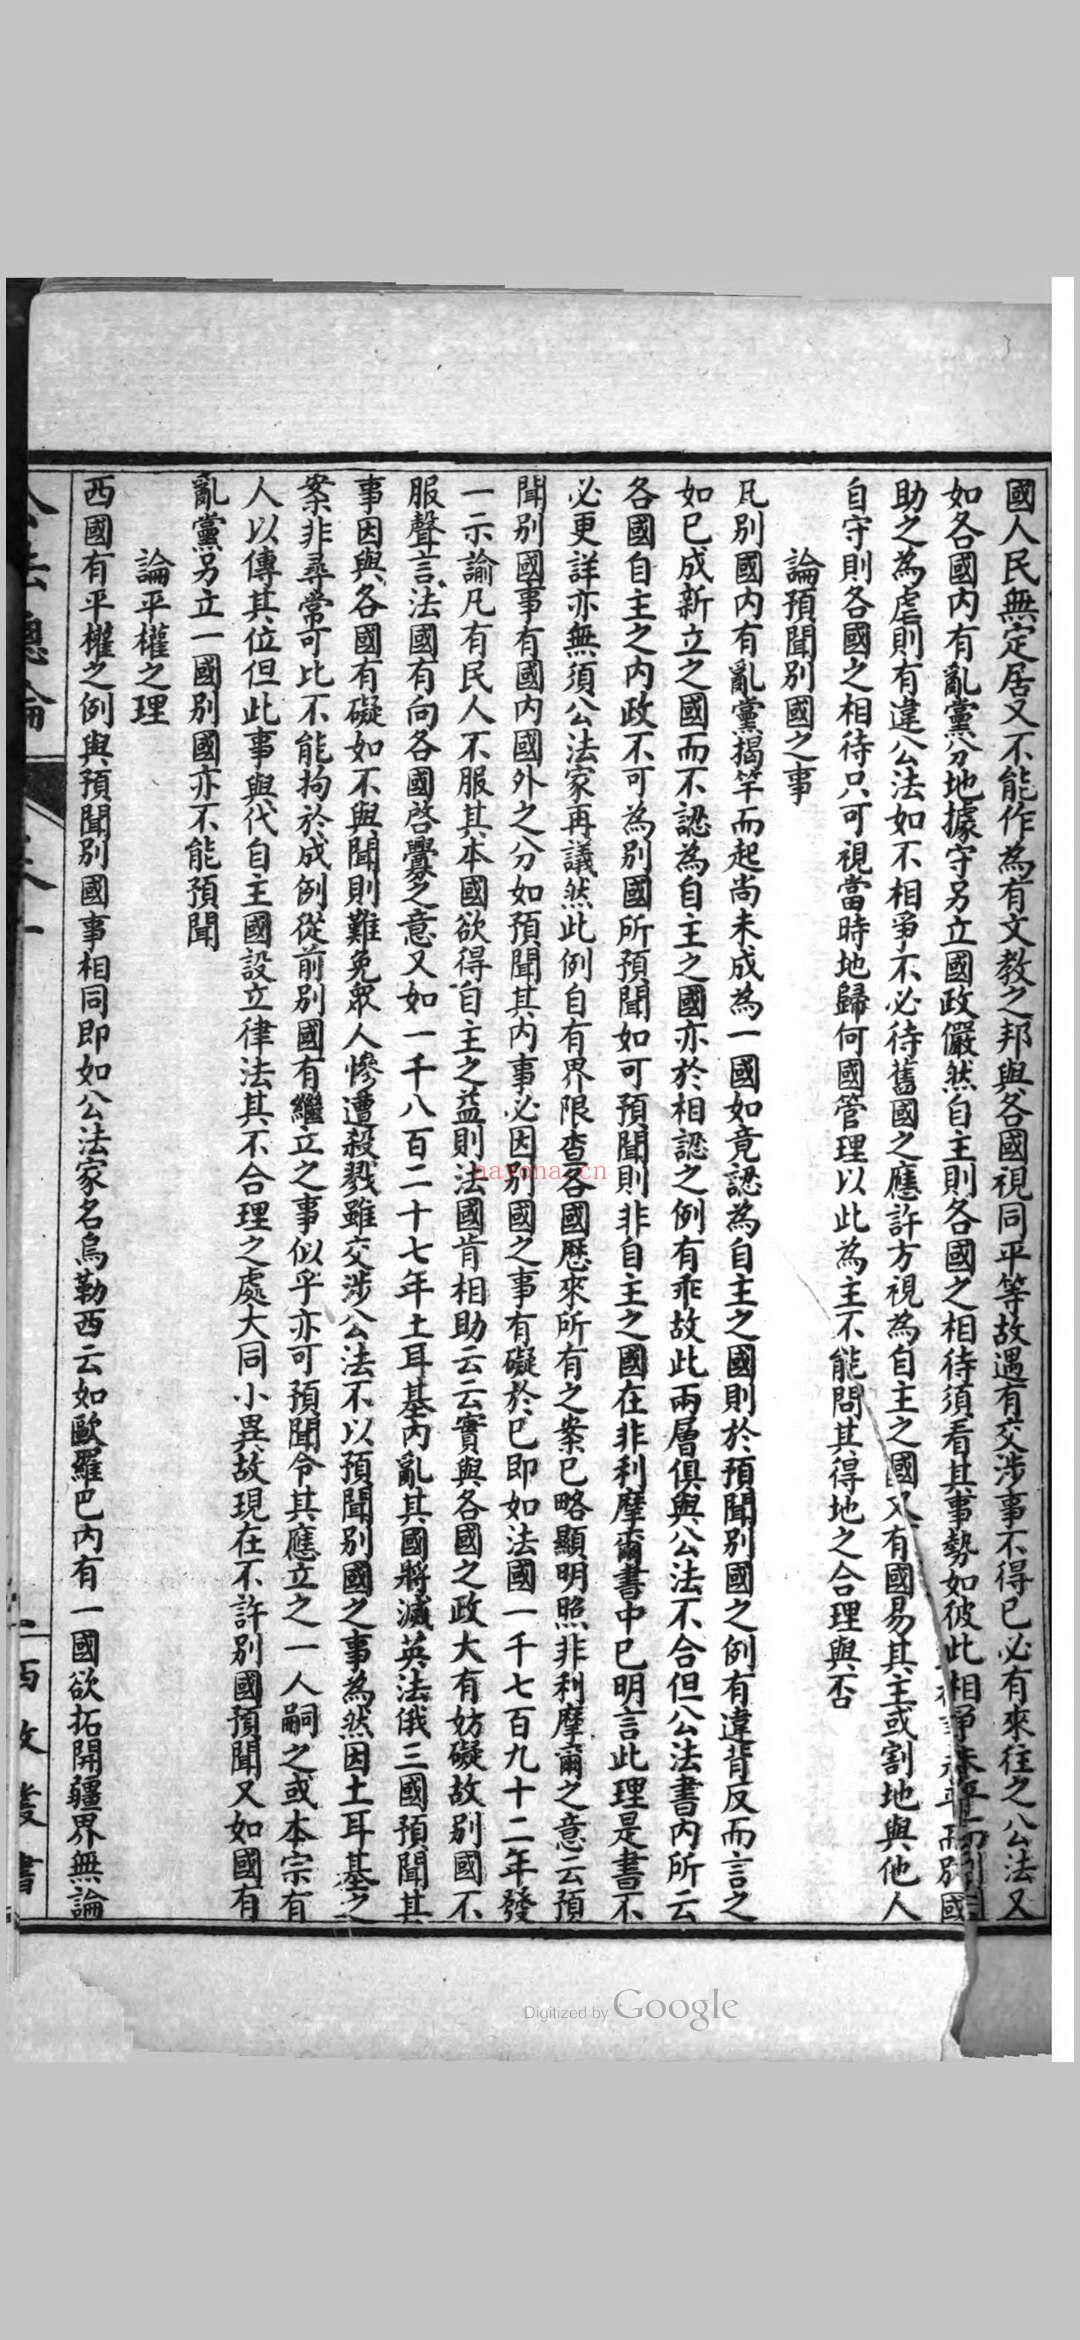 國人民無定居又不能作為有文教之邦與各國視同平等故遇有交涉事不得已必有來往之公法又
如各國內有亂黨分地據守另立國政儼然自主則各國之相待須看其事勢如彼此相爭未平而別國
助之為虐則有違公法如不相爭不必待舊國之應許方視為自主之國又有國易其主或割地與他人
自守則各國之相待只可視當時地歸何國管理以此為主不能問其得地之合理與否
論預聞別國之事
凡別國內有亂黨揭竿而起尚未成為一國如竟認為自主之國則於預聞別國之例有違背反而言之
如已成新立之國而不認為自主之國亦於相認之例有乖故此兩層俱與公法不合但公法書內所云
各國自主之內政不可為別國所預聞如可預聞則非自主之國在非利摩爾書中已明言此理是書不
必更詳亦無須公法家再議然此例自有界限查各國歷來所有之案已略顯明照非利摩爾之意云預
聞別國事有國內國外之分如預聞其內事必因別國之事有礙於己即如法國一千七百九十二年發
一示諭凡有民人不服其本國欲得自主之益則法國肯相助云云實與各國之政大有妨礙故別國不
服聲言法國有向各國啓釁之意又如一千八百二十七年土耳基內亂其國將滅英法俄三國預聞其
事因與各國有礙如不與聞則難免眾人慘遭殺戮雖交涉公法不以預聞別國之事為然因土耳基之
案非尋常可比不能拘於成例從前別國有繼立之事似乎亦可預聞令其應立之一人嗣之或本宗有
人以傳其位但此事與代自主國設立律法其不合理之處大同小異故現在不許別國預聞又如國有
亂黨另立一國別國亦不能預聞
論平權之理
西國有平權之例與預聞別國事相同即如公法家名烏勒西云如歐羅巴內有一國欲拓開疆界無論
公法總論
西政叢書
hayona.cn
Digitized by Google